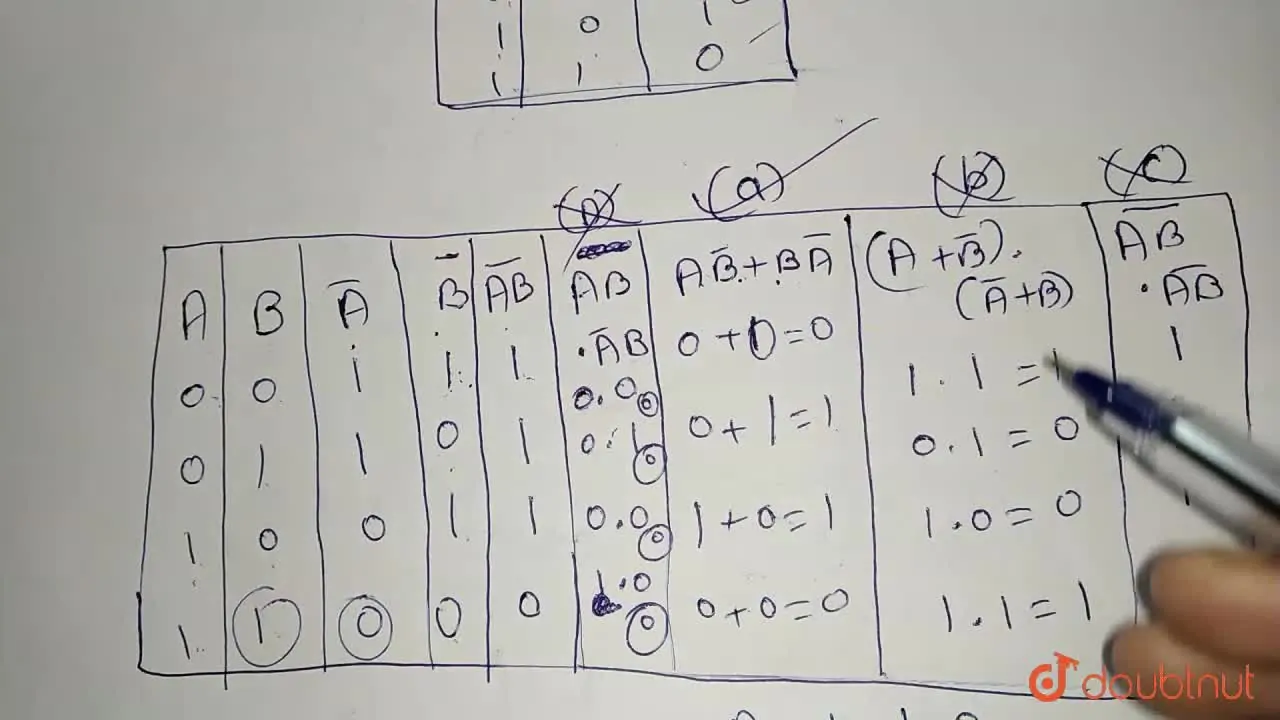 1 0 1
1 1 0
(a) (b) (c)
A B A̅ B̅ A̅B̅ AB AB̅+BA̅ (A+B̅). A̅B̅
.A̅B (A̅+B) .A̅B̅
0 0 1 1 1 0.0 0 0+0=0 1.1=1 1
0 1 1 0 1 0.1 0 0+1=1 0.1=0
1 0 0 1 1 0.0 0 1+0=1 1.0=0 1
1 1 0 0 0 1.0 0 0+0=0 1.1=1
doubtnut